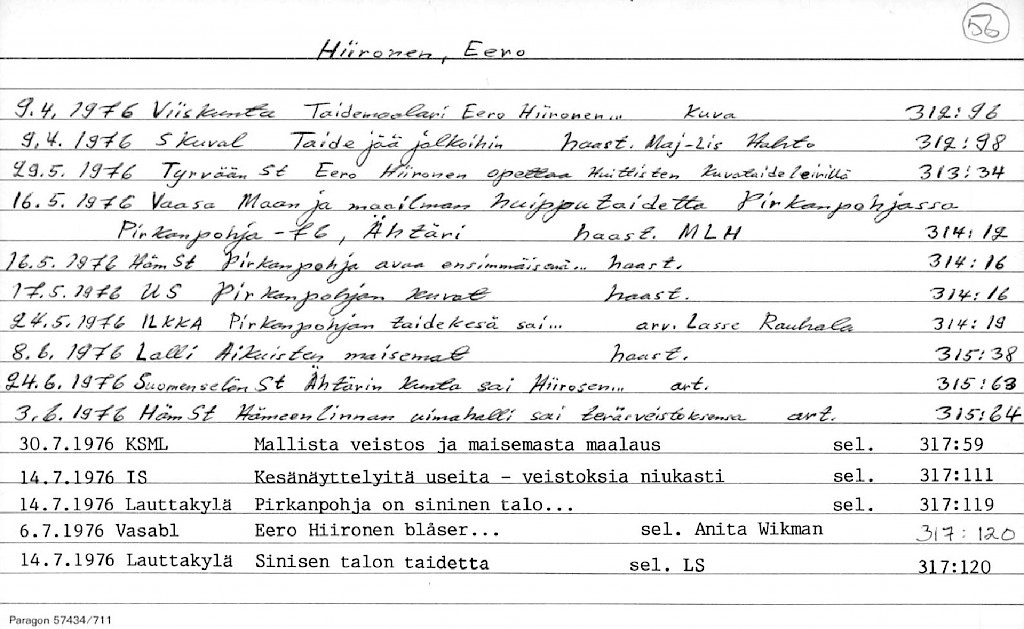 56
Hiironen, Eero
9.4.1976 Viiskunta Taidemaalari Eero Hiironen... kuva 312:96
9.4.1976 S kuval Taide jää jalkoihin haast. Maj-Lis Hahto 312:98
29.5.1976 Tyrvään St Eero Hiironen opettaa Huittisten kuvataideleirillä 313:34
16.5.1976 Vaasa Maan ja maailman huipputaidetta Pirkanpohjassa
Pirkanpohja -76, Ähtäri haast. MLH 314:12
16.5.1976 HämSt Pirkanpohja avaa ensimmäisenä... haast. 314:16
17.5.1976 US Pirkanpohjan kuvat haast. 314:16
24.5.1976 ILKKA Pirkanpohjan taidekesä sai... arv. Lasse Rauhala 314:19
8.6.1976 Lalli Aikuisten maisemat haast. 315:38
24.6.1976 Suomenselän St Ähtärin kunta sai Hiirosen... art. 315:63
3.6.1976 HämSt Hämeenlinnan uimahalli sai teräsveistoksensa art. 315:64
30.7.1976 KSML Mallista veistos ja maisemasta maalaus sel. 317:59
14.7.1976 IS Kesänäyttelyitä useita - veistoksia niukasti sel. 317:111
14.7.1976 Lauttakylä Pirkanpohja on sininen talo... sel. 317:119
6.7.1976 Vasabl Eero Hiironen blåser... sel. Anita Wikman 317:120
14.7.1976 Lauttakylä Sinisen talon taidetta sel. LS 317:120
Paragon 57434/711